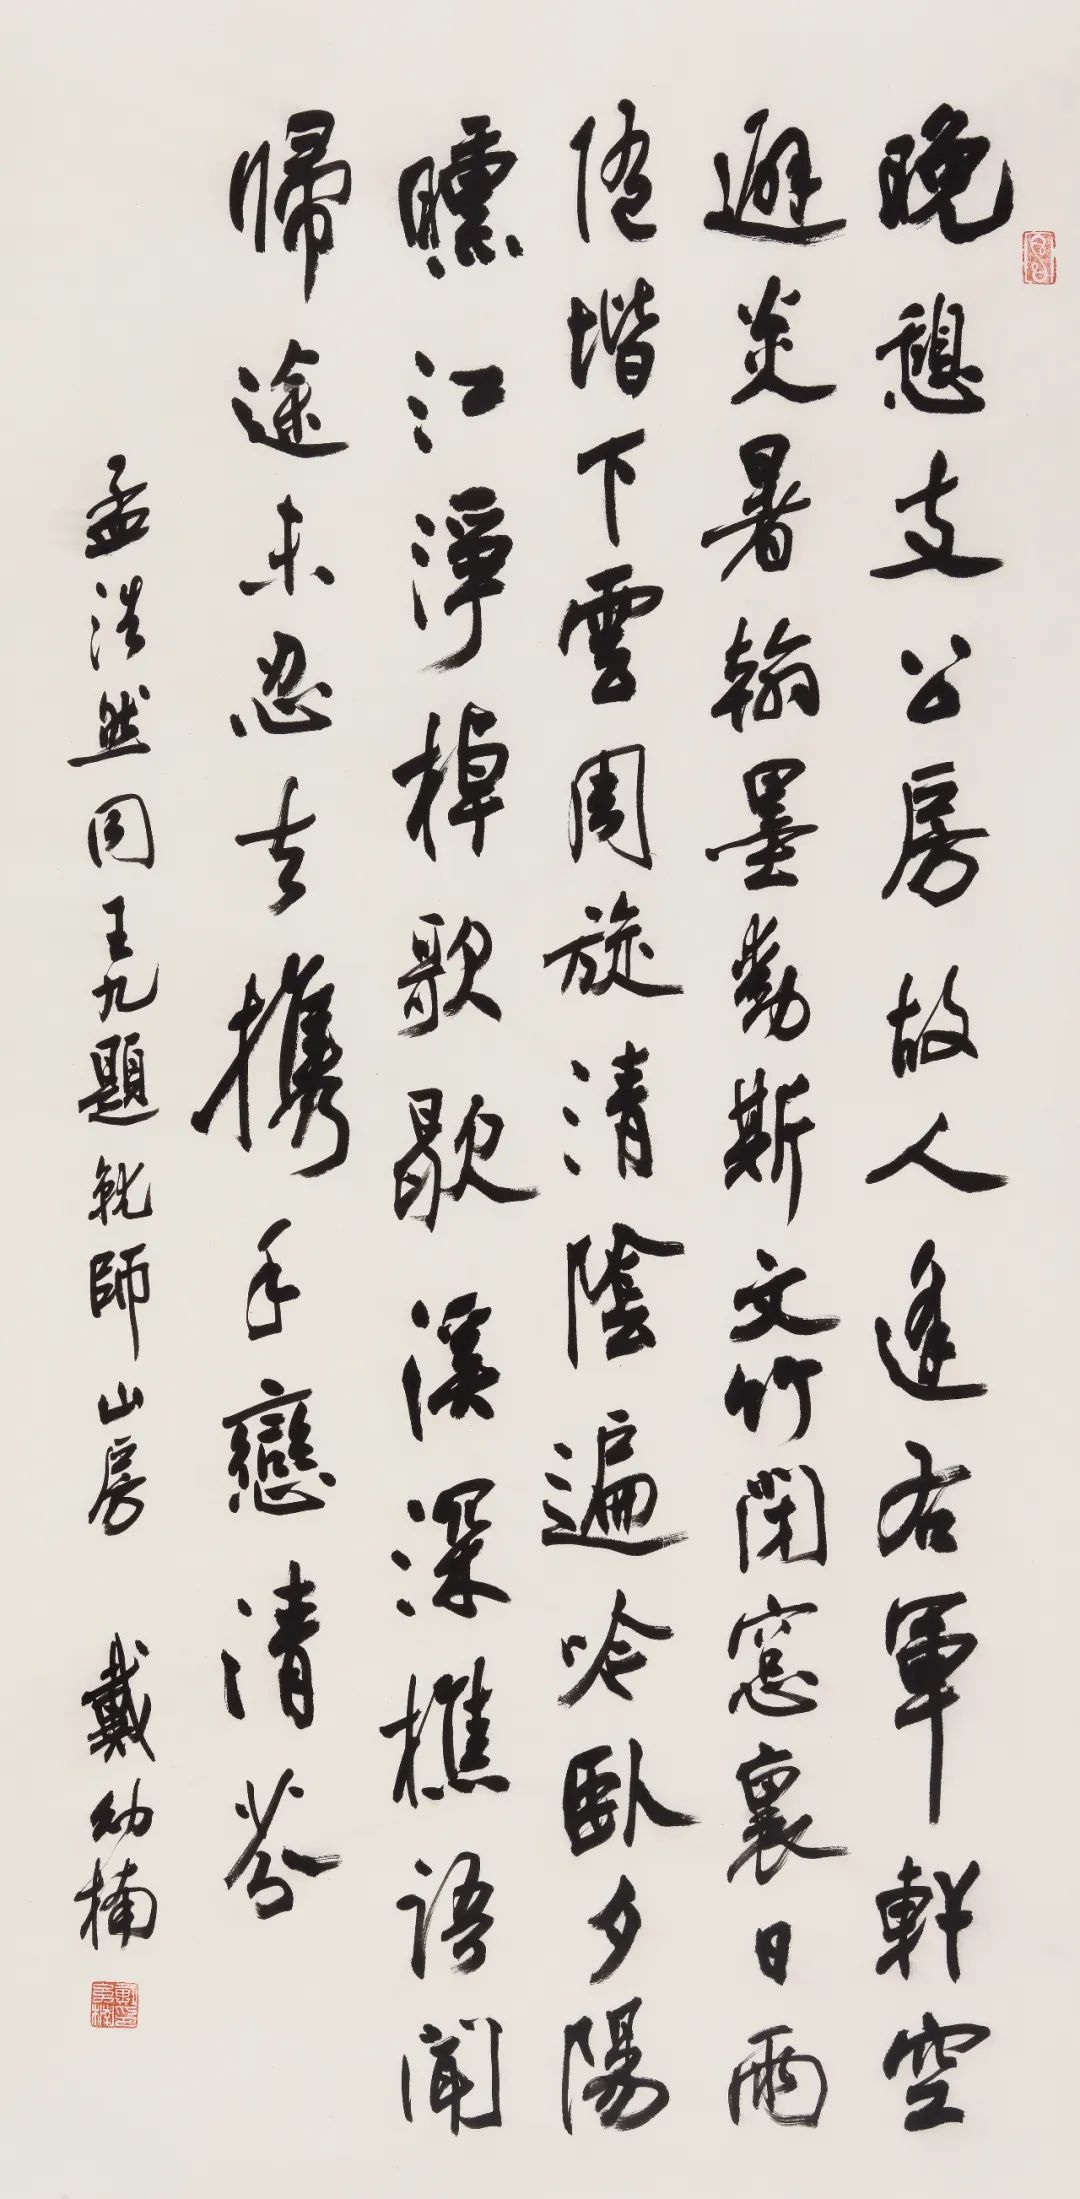 晚憩支公房故人逢右軍軒空
避炎暑翰墨動斯文竹閉窓裏日雨
随堦下雲周旋清陰遍吟臥夕陽
曛江淨棹歌歇溪深樵語聞
帰途未忍去携手戀清芬
孟浩然同王九題就師山房 戴幼楠